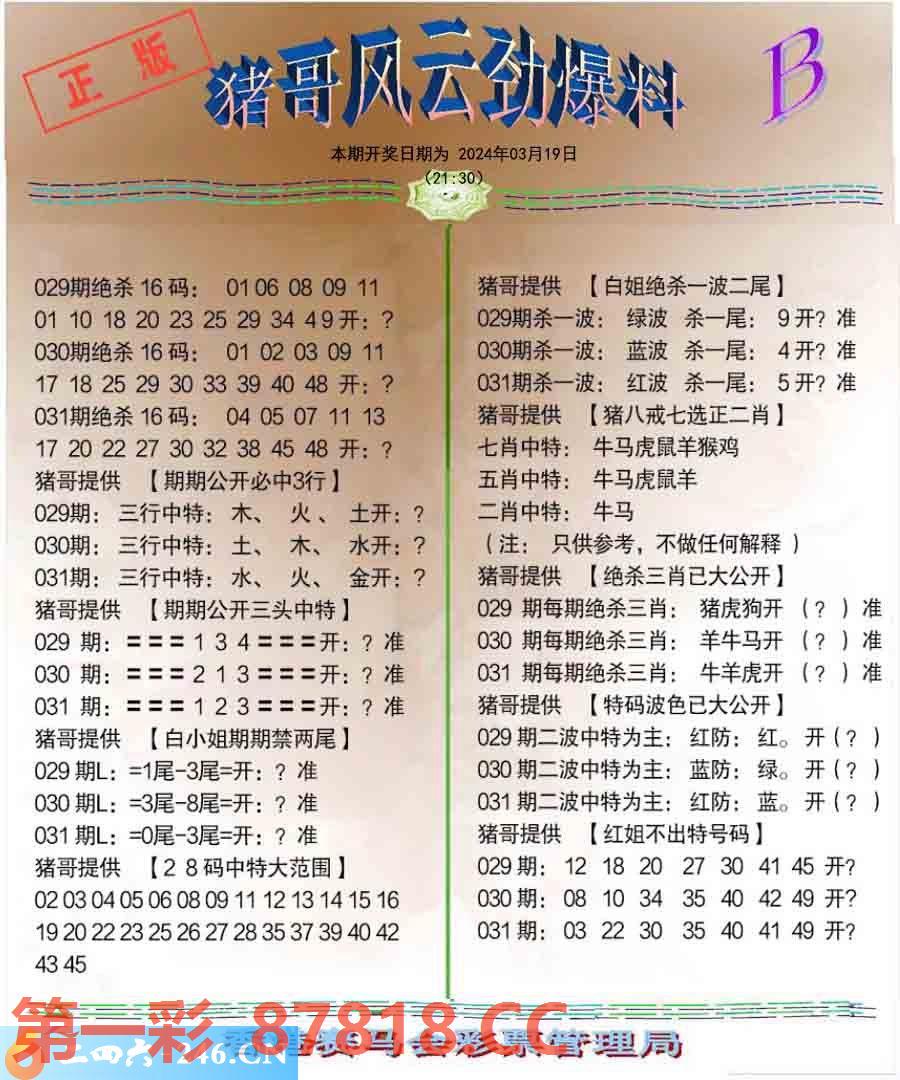 正版
猪哥风云劲爆料
B
本期开奖日期为 2024年03月19日
(21:30)
029期绝杀 16 码： 01 06 08 09 11
01 10 18 20 23 25 29 34 49 开：?
030期绝杀 16 码： 01 02 03 09 11
17 18 25 29 30 33 39 40 48 开：?
031期绝杀 16 码： 04 05 07 11 13
17 20 22 27 30 32 38 45 48 开：?
猪哥提供 【期期公开必中3行】
029期： 三行中特：木、 火、 土开：?
030期： 三行中特：土、 木、 水开：?
031期： 三行中特：水、 火、 金开：?
猪哥提供 【期期公开三头中特】
029 期：=== 1 3 4 ===开：? 准
030 期：=== 2 1 3 ===开：? 准
031 期：=== 1 2 3 ===开：? 准
猪哥提供 【白小姐期期禁两尾】
029 期L：=1尾-3尾=开：? 准
030 期L：=3尾-8尾=开：? 准
031 期L：=0尾-3尾=开：? 准
猪哥提供 【２８码中特大范围】
02 03 04 05 06 08 09 11 12 13 14 15 16
19 20 22 23 25 26 27 28 35 37 39 40 42
43 45
猪哥提供 【白姐绝杀一波二尾】
029期杀一波： 绿波 杀一尾： 9开? 准
030期杀一波： 蓝波 杀一尾： 4开? 准
031期杀一波： 红波 杀一尾： 5开? 准
猪哥提供 【猪八戒七选正二肖】
七肖中特： 牛马虎鼠羊猴鸡
五肖中特： 牛马虎鼠羊
二肖中特： 牛马
（注： 只供参考，不做任何解释 ）
猪哥提供 【绝杀三肖已大公开】
029 期每期绝杀三肖： 猪虎狗开 （? ）准
030 期每期绝杀三肖： 羊牛马开 （? ）准
031 期每期绝杀三肖： 牛羊虎开 （? ）准
猪哥提供 【特码波色已大公开】
029 期二波中特为主：红防：红。开（? ）
030 期二波中特为主：蓝防：绿。开（? ）
031 期二波中特为主：红防：蓝。开（? ）
猪哥提供 【红姐不出特号码】
029 期： 12 18 20 27 30 41 45 开?
030 期： 08 10 34 35 40 42 49 开?
031 期： 03 22 30 35 40 41 49 开?
第一彩 87818.CC
二四六 246.CN
香港赛马会彩票管理局